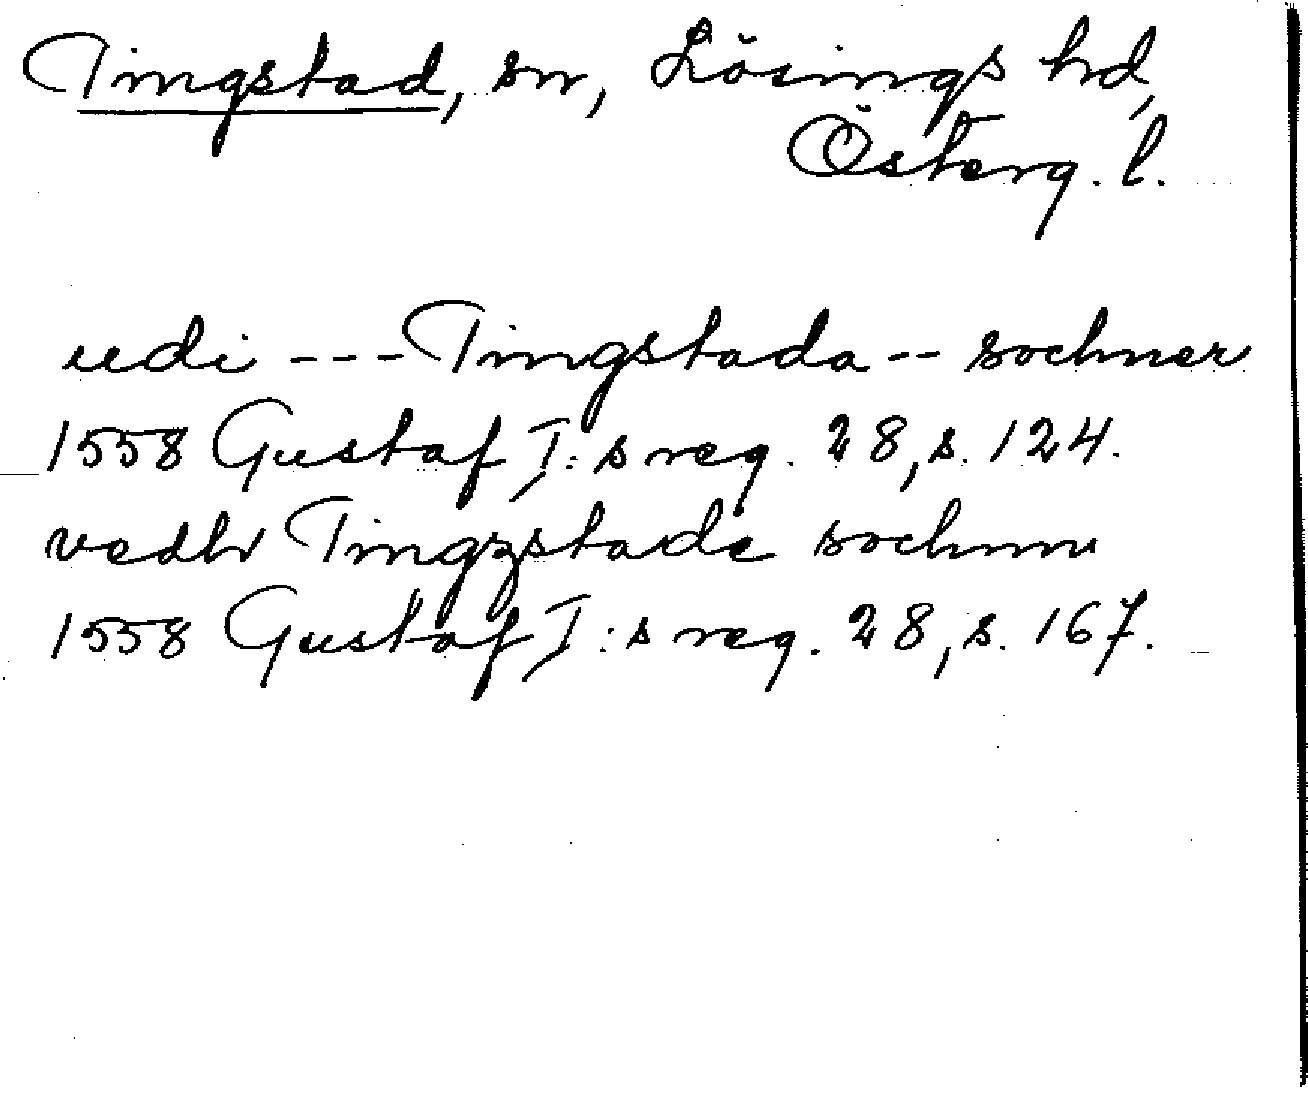 Tingstad, sn, Lösings hd,
Österg. l.
udi --- Tingstada -- sochner
1558 Gustaf I:s reg. 28, s. 124.
vedhr Tingzstade sochnn
1558 Gustaf I:s reg. 28, s. 167.